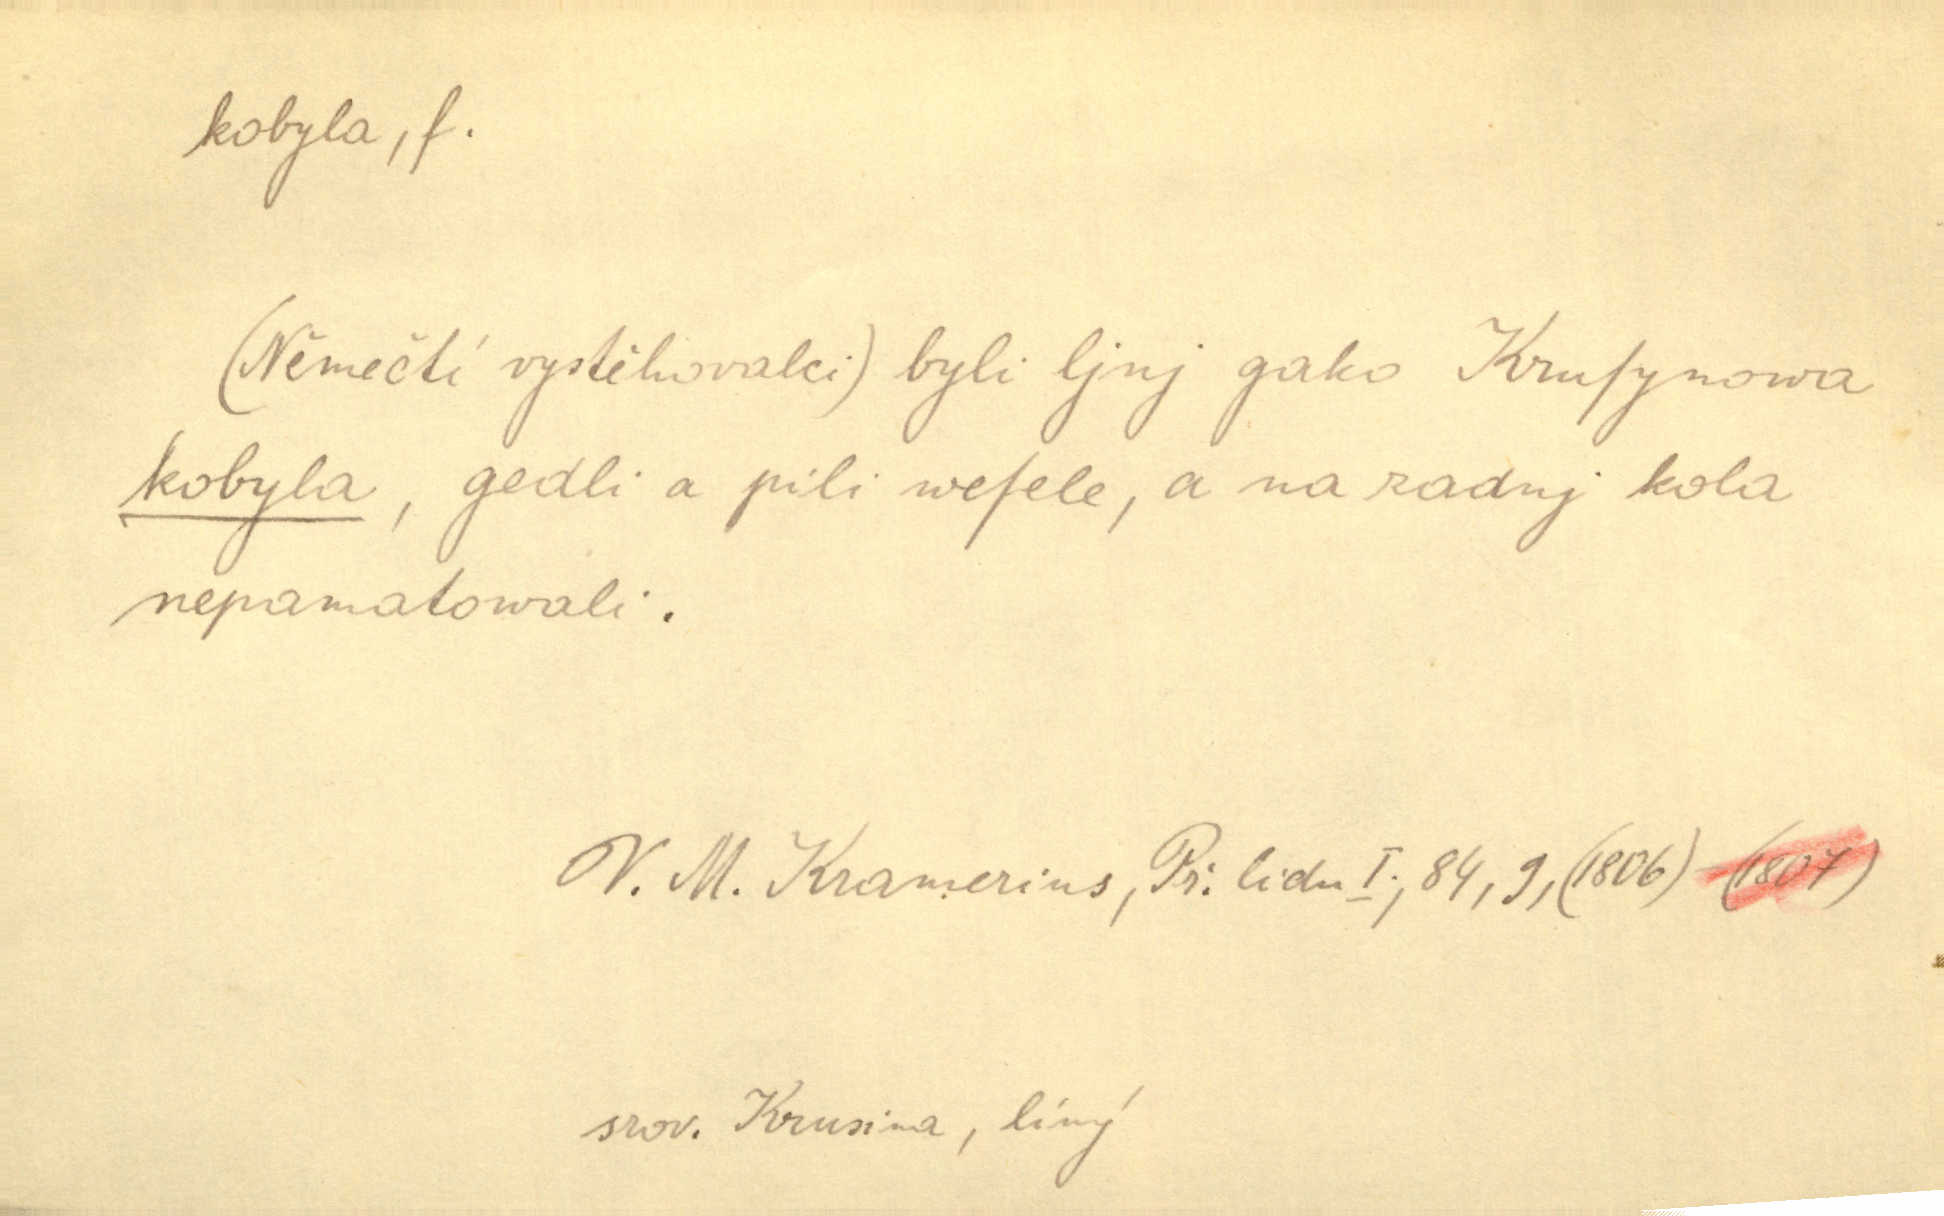 kobyla, f.
(Němečtí vystěhovalci) byli ljnj gako Kruſynowa
kobyla, gedli a pili weſele, a na zadnj kola
nepamatowali.
V. M. Kramerius, Př. lidu I., 84, 9, (1806) (1807)
srov. Krusina, líný